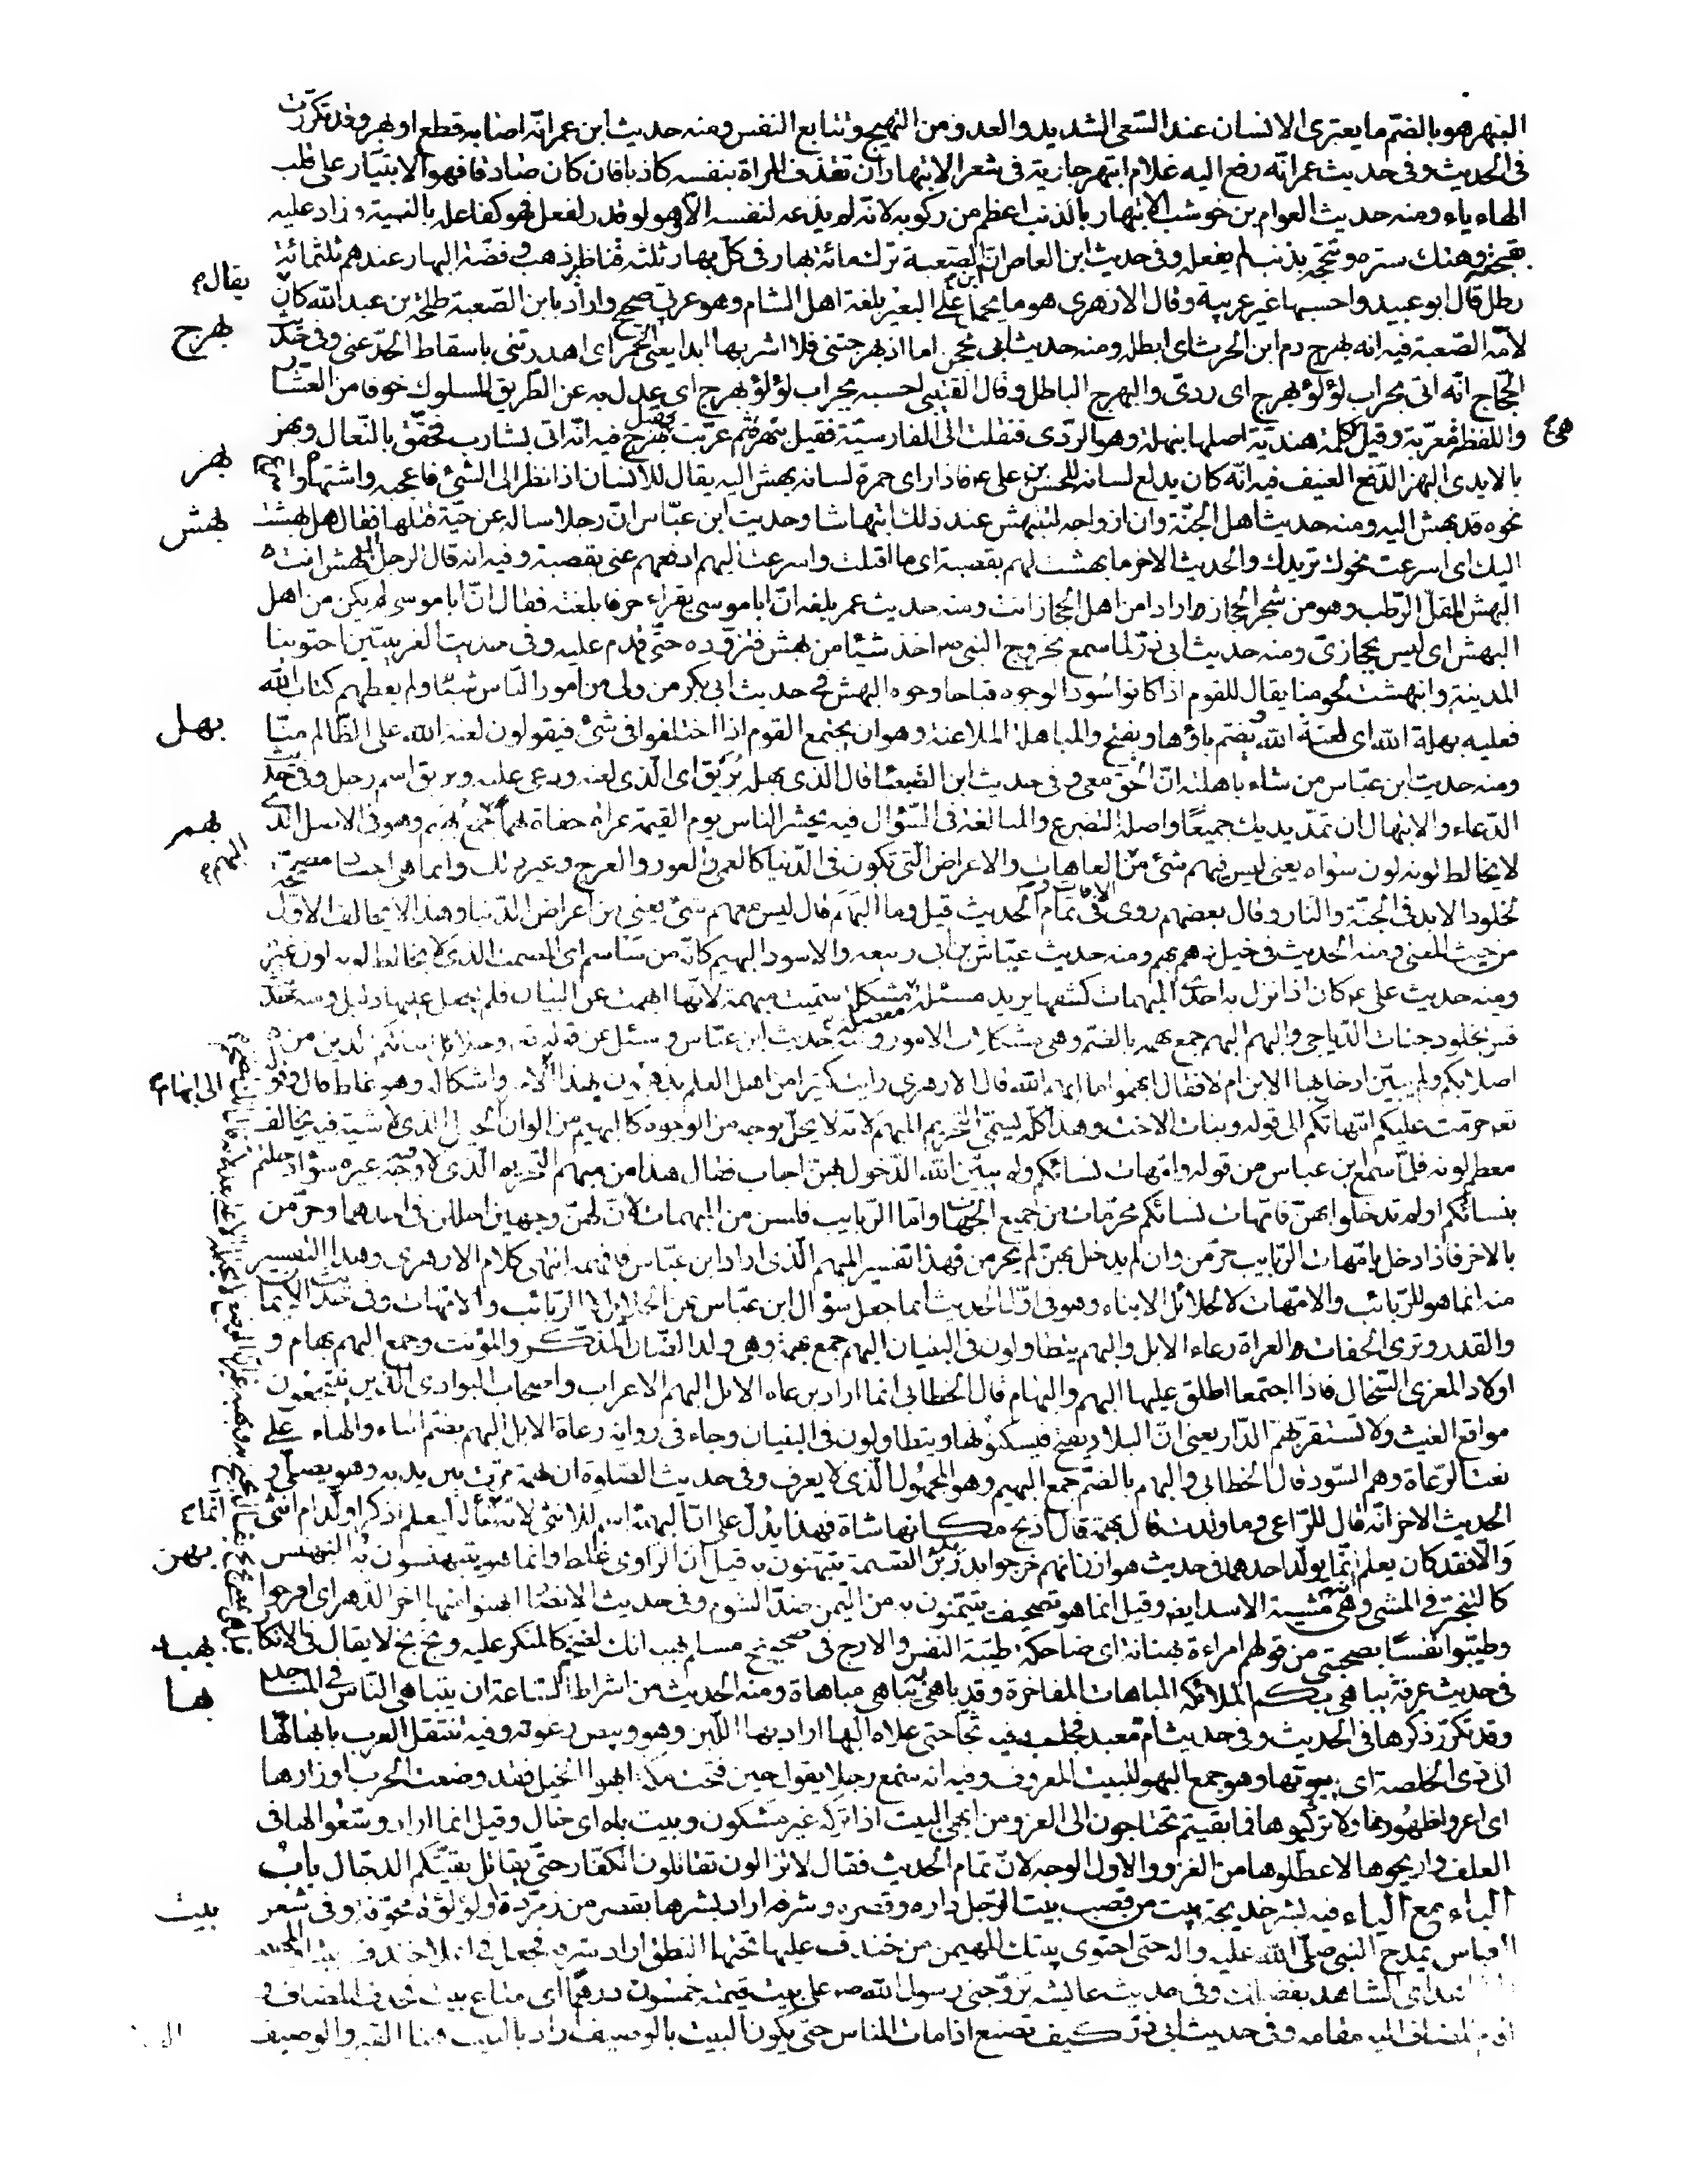 البهر هو بالضم ما يعترى الانسان عند السعى الشديد والعدو من التهيج وتتابع النفس ومنه حديث ابن عمر انه اصابه قطع او بهر وقد تكررت
فى الحديث وفى حديث عمر انه رفع اليه غلام ابتهر جارية فى شعر الابتهار ان تقذف المراة بنفسه كاذبا فان كان صادقا فهو الابتيار على قلب
الهاء ياء ومنه حديث العوام بن خوشب الابتهار بالذنب اعظم من ركوبه لانه لم يدعه لنفسه الا وهو لو قدر لفعل فهو كفاعله بالنية وزاد عليه
بقبحه وهتك ستره وتبجحه بذنب لم يفعله وفى حديث ابن العاص ان ابن الصعبة ترك مائة بهار فى كل بهار ثلثة قناطير ذهب وفضة البهار عندهم ثلثمائة
يقال
رطل قال ابو عبيد واحسبها غير عربية وقال الازهرى هو ما يحمل على البعير بلغة اهل الشام وهو عربى صحيح واراد بابن الصعبة طلحة بن عبد الله كان
بهرج
لامه الصعبة فيه انه بهرج دم ابن الحرث اى ابطله ومنه حديث ابى محجن اما اذ بهرجتنى فلا اشربها ابدا يعنى الخمر اى اهدرتنى باسقاط الحد عنى وفى حديث
الحجاج انه اتى بجراب لؤلؤ بهرج اى ردى والبهرج الباطل وقال القتيبى احسبه بجراب لؤلؤ بهرج اى عدل به عن الطريق المسلوك خوفا من العشار
واللفظة معربة وقيل كلمة هندية اصلها نبهلة وهو الردى فنقلت الى الفارسية فقيل نبهرة ثم عربت فقيل بهرج فيه انه اتى بشارب فخفق بالنعال وبهز
بهز
بالايدى البهز الدفع العنيف فيه انه كان يدلع لسانه للحسن بن على ع فاذا راى حمرة لسانه بهش اليه يقال للانسان اذا نظر الى الشئ فاعجبه واشتهاه و
بهش
نحوه قد بهش اليه ومنه حديث اهل الجنة وان ازواجه لتبتهش عند ذلك ابتهاشا وحديث ابن عباس ان رجلا ساله عن حية قتلها فقال هل بهشت
اليك اى اسرعت نحوك تريدك والحديث الاخر ما بهشت لهم بقصبة اى ما اقبلت واسرعت اليهم ادفعهم عنى بقصبة وفيه انه قال لرجل امن اهل البهش انت
البهش المقل الرطب وهو من شجر الحجاز اراد امن اهل الحجاز انت ومنه حديث عمر بلغه ان ابا موسى يقراء حرفا بلغته فقال ان ابا موسى لم يكن من اهل
البهش اى ليس بحجازى ومنه حديث ابى ذر لما سمع بخروج النبى اخذ شيئا من بهش فتزوده حتى قدم عليه وفى حديث العرنيين اجتوينا
المدينة وانبهشت لحومنا يقال للقوم اذا كانوا سود الوجوه قباحا وجوه البهش فى حديث ابى بكر من ولى من امور الناس شيئا ولم يعطهم كتاب الله
بهل
فعليه بهلة الله اى لعنة الله وتضم باؤها وتفتح والمباهلة الملاعنة وهو ان يجتمع القوم اذا اختلفوا فى شئ فيقولون لعنة الله على الظالم منا
ومنه حديث ابن عباس من شاء باهلته ان الحق معى وفى حديث ابن الصبغا قال الذى بهله بريق اى الذى لعنه ودعى عليه وبريق اسم رجل وفى حديث
بهم
الدعاء والابتهال ان تمد يديك جميعا واصله التضرع والمبالغة فى السؤال فيه يحشر الناس يوم القيمة عراة حفاة بهما جمع بهيم وهو فى الاصل الذى
لا يخالط لونه لون سواه يعنى ليس فيهم شئ من العاهات والاعراض التى تكون فى الدنيا كالعمى والعور والعرج وغير ذلك وانما هى اجساد مصححة
لخلود الابد فى الجنة والنار وقال بعضهم روى فى تمام الحديث قيل وما البهم قال ليس معهم شئ يعنى من اعراض الدنيا وهذا لا يخالف الاول
من حيث المعنى ومنه الحديث فى خيل دهم بهم ومنه حديث عياش بن ابى ربيعه والاسود البهيم كانه من ساسم اى المصمت الذى لا يخالط لونه لون غيره
ومنه حديث على ع كان اذا نزل به احدى المبهمات كشفها يريد مسئلة معضلة مشكلة سميت مبهمة لانها ابهمت عن البيان فلم يجعل عليها دليل ومنه حديث
قس تجلو دجنات الدياجى والبهم البهم جمع بهمة بالضم وهى مشكلات الامور ومنه حديث ابن عباس وسئل عن قوله تع وحلائل ابنائكم الذين من
اصلابكم ولم يبين ادخل بها الابن ام لا فقال ابهموا ما ابهم الله قال الازهرى رايت كثيرا من اهل العلم يذهبون بهذا الى ابهام الامر واشكاله وهو غلط قال وقوله
تعه حرمت عليكم امهاتكم الى قوله وبنات الاخت وهذا كله يسمى التحريم المبهم لانه لا يحل بوجه من الوجوه كالبهيم من الوان الخيل الذى لا شية فيه يخالف
معظم لونه فلما سئل ابن عباس من قوله وامهات نسائكم ولم يبين الله الدخول بهن اجاب فقال هذا من مبهم التحريم الذى لا وجه فيه غيره سواء دخلتم
بنسائكم او لم تدخلوا بهن فامهات نسائكم محرمات من جميع الجهات واما الربايب فلسن من المبهمات لان لهن وجهين احللن فى احدهما وحرمن
بالاخر فاذا دخل بامهات الربايب حرمن وان لم يدخل بهن لم يحرمن فهذا تفسير المبهم الذى اراد ابن عباس فافهمه انتهى كلام الازهرى وهذا التفسير
منه انما هو للربائب والامهات لا لحلائل الابناء وهو فى اول الحديث انما جعل سؤال ابن عباس عن الحلائل لا الربائب والامهات وفى حديث الايمان
والقدر وترى الحفات العراة رعاء الابل والبهم يتطاولون فى البنيان البهم جمع بهمة وهى ولد الضان المذكر والمؤنث وجمع البهم بهام و
اولاد المعزى السخال فاذا اجتمعا اطلق عليهما البهم والبهام قال الخطابى انما اراد برعاء الابل البهم الاعراب واصحاب البوادى الذين ينتجعون
مواقع الغيث ولا تستقر بهم الدار يعنى ان البلاد يفتح فيسكنونها ويتطاولون فى البنيان وجاء فى رواية رعاة الابل البهم بضم الباء والهاء على
نعت الرعاة وهم السود قال الخطابى والبهم بالضم جمع البهيم وهو المجهول الذى لا يعرف وفى حديث الصلوة ان بهمة مرت بين يديه وهو يصلى و
الحديث الاخر انه قال للراعى وما ولدت قال بهمة قال اذبح مكانها شاة فهذا يدل على ان البهمة اسم للانثى لانه انما سأله ليعلم اذكرا ولد ام انثى
بهن
والا فقد كان يعلم انما يولد احدهما فى حديث هوازن انهم خرجوا بدريد بن الصمة يتبهنون به قيل ان الراوى غلط وانما هو يتبهنسون به التبهنس
كالتبختر فى المشى وهى مشية الاسد ايضا وقيل انما هو تصحيف يتيمنون به من اليمن ضد الشوم وفى حديث الانصار ابهنوا منها اخر الدهر اى افرحوا
بهبه
وطيبوا نفسا بصحبتى من قولهم امراءة بهنانة اى ضاحكة طيبة النفس والارج فى صحيح مسلم بهبه انك لضخم كالمنكر عليه وبخ بخ لا يقال فى الانكار
بها
فى حديث عرفة يباهى بكم الملائكة المباهات المفاخرة وقد باهى به يباهى مباهاة ومنه الحديث من اشراط الساعة ان يتباهى الناس فى المساجد
وقد تكرر ذكرها فى الحديث وفى حديث ام معبد فحلب فيه ثجا حتى علاه البهاء اراد بهاء اللبن وهو وبيص رغوته وفيه تنتقل العرب بابهائها
الى ذى الخلصة اى ببيوتها وهو جمع البهو للبيت المعروف وفيه انه سمع رجلا يقول حين فتحت مكة ابهوا الخيل فقد وضعت الحرب اوزارها
اى اعروا ظهورها ولا تركبوها فما بقيتم تحتاجون الى الغزو من ابهى البيت اذا تركه غير مسكون وبيت باه اى خال وقيل انما اراد وسعوا لها فى
العلف واريحوها لا عطلوها من الغزو والاول الوجه لان تمام الحديث فقال لا تزالون تقاتلون الكفار حتى يقاتل بقيتكم الدجال باب
بيت
الباء مع الياء فيه بشر خديجة ببيت من قصب بيت الرجل داره وقصره وشرفه اراد بشرها بقصر من زمردة او لؤلؤة مجوفة وفى شعر
العباس يمدح النبى صلى الله عليه واله حتى احتوى بيتك المهيمن من خندف علياء تحتها النطق اراد شرفه فجعله فى اعلا خندف بيتا والمهيمن
اى الشاهد بفضلك وفى حديث عايشه تزوجنى رسول الله ص على بيت قيمته خمسون درهما اى متاع بيت فحذف المضاف و
اقيم المضاف اليه مقامه وفى حديث ابى ذر كيف تصنع اذا مات الناس حتى يكون البيت بالوصيف اراد بالبيت هنا القبر والوصيف